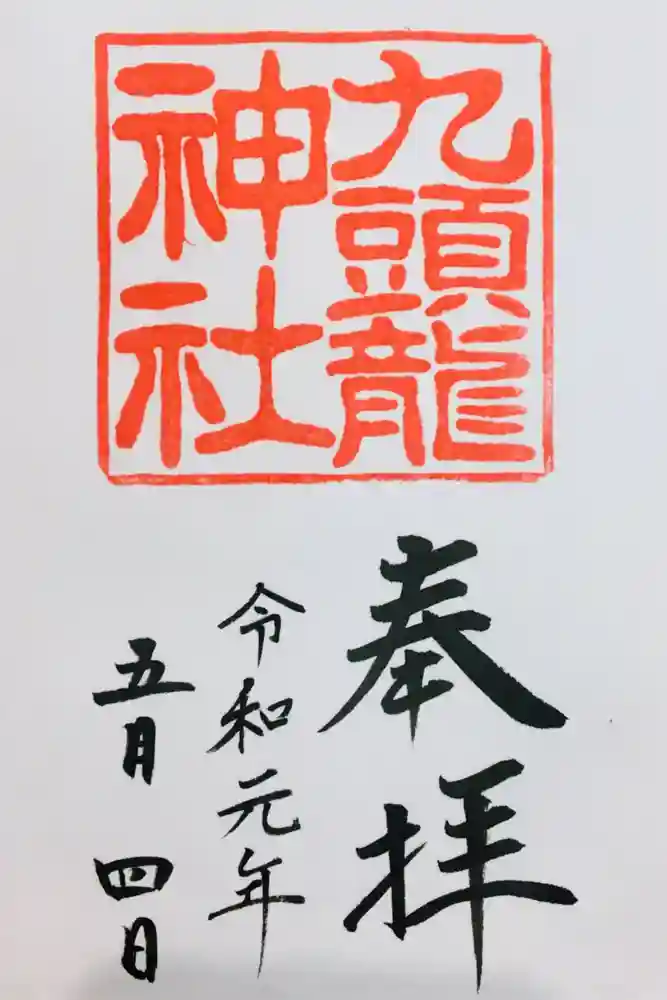 九頭龍
神社
奉拝
令和元年
五月四日